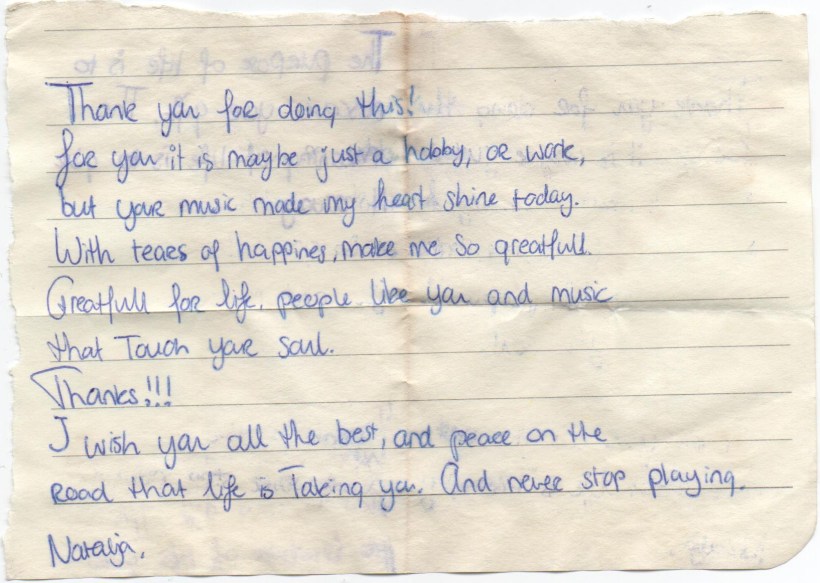 Thank you for doing this!
for you it is maybe just a hobby, or work,
but your music made my heart shine today.
With tears of happines, make me so greatfull.
Greatfull for life, people like you and music
that Touch your soul.
Thanks!!!
I wish you all the best, and peace on the
Road that life is Taking you. And never stop playing.
Natalija.